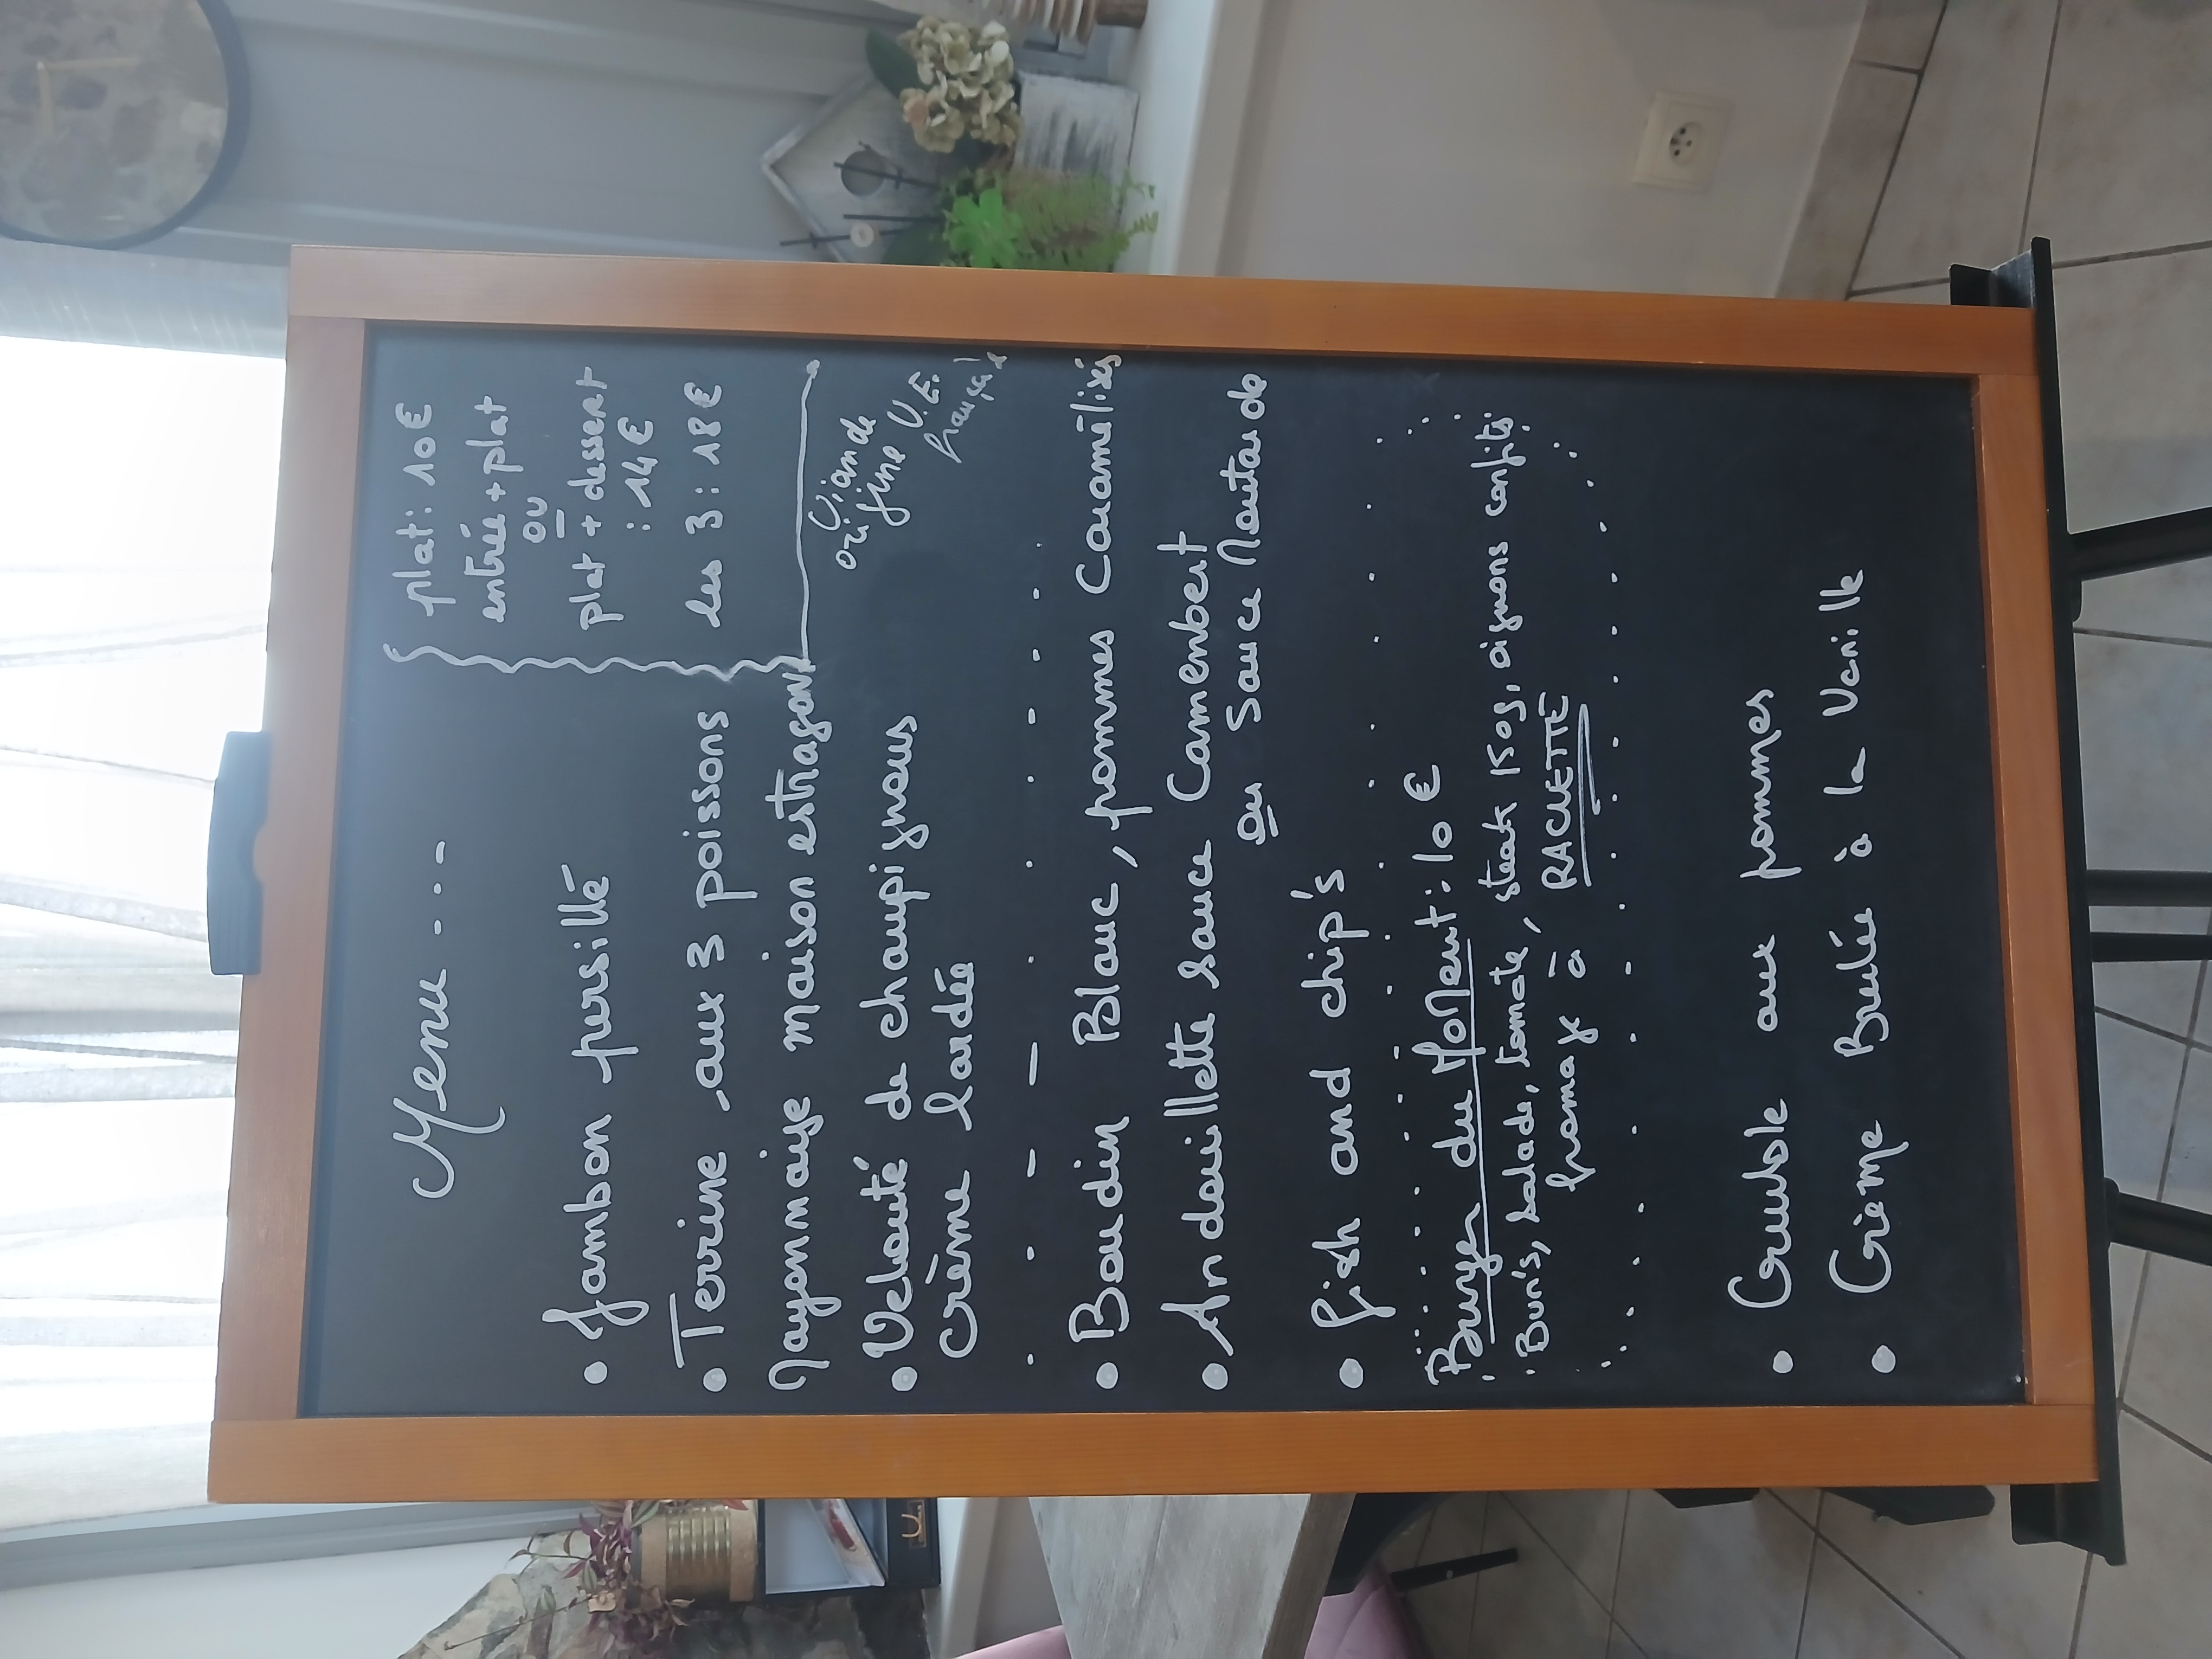 Menu ....
plat : 10€
entrée + plat
ou
plat + dessert
: 14€
les 3 : 18€
Viande
origine U.E.
française
• Jambon persillé
• Terrine aux 3 poissons
Mayonnaise maison estragon
• Velouté de champignons
crème lardée
• Boudin Blanc, pommes Caramélisés
• Andouillette sauce Camenbert
ou Sauce Moutarde
• Fish and chip's
Burger du Moment : 10 €
Bun's, salade, tomate, steak 150g, oignons confits
fromage à RACLETTE
• Crumble aux pommes
• Crème Brulée à la Vanille